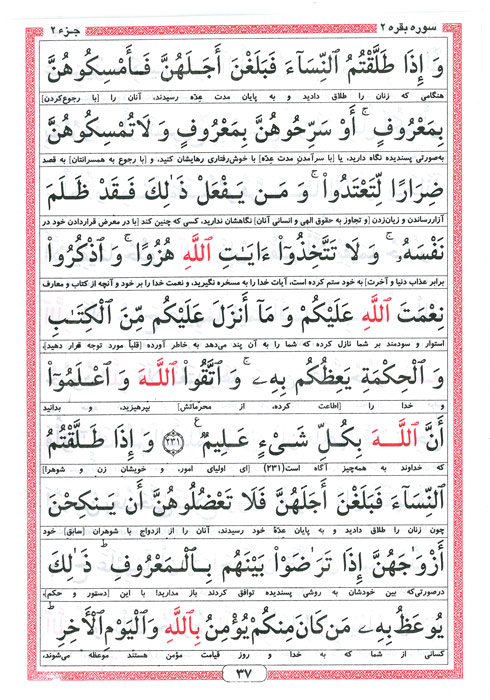 سوره بقره ۲
جزء ۲
وَ إِذَا طَلَّقْتُمُ ٱلنِّسَآءَ فَبَلَغْنَ أَجَلَهُنَّ فَأَمْسِكُوهُنَّ
هنگامی که زنان را طلاق دادید و به پایان مدت عِدّه رسیدند، آنان را [با رجوع کردن]
بِمَعْرُوفٍ ۚ أَوْ سَرِّحُوهُنَّ بِمَعْرُوفٍ وَ لَاتُمْسِكُوهُنَّ
به‌صورتی پسندیده نگاه دارید، یا [با سرآمدن مدت عِدّه] با خوش‌رفتاری رهایشان کنید، و [با رجوع به همسرانتان] به قصد
ضِرَارًا لِّتَعْتَدُوا۟ ۚ وَ مَن يَفْعَلْ ذَٰلِكَ فَقَدْ ظَلَمَ
آزاررساندن و زیان‌زدن [و تجاوز به حقوق الهی و انسانی آنان] نگاهشان ندارید، کسی که چنین کند [با در معرض قراردادن خود در
نَفْسَهُۥ ۚ وَ لَا تَتَّخِذُوٓا۟ ءَايَٰتِ ٱللَّهِ هُزُوًا ۚ وَ ٱذْكُرُوا۟
برابر عذاب دنیا و آخرت] به خود ستم کرده است، آیات خدا را به مسخره نگیرید، و نعمت خدا را بر خود و آنچه از کتاب و معارف
نِعْمَتَ ٱللَّهِ عَلَيْكُمْ وَ مَآ أَنزَلَ عَلَيْكُم مِّنَ ٱلْكِتَٰبِ
استوار و سودمند بر شما نازل کرده که شما را به آن پند می‌دهد به خاطر آورده [قلباً مورد توجه قرار دهید]،
وَ ٱلْحِكْمَةِ يَعِظُكُم بِهِۦ ۚ وَ ٱتَّقُوا۟ ٱللَّهَ وَ ٱعْلَمُوٓا۟
و خدا را [اطاعت کرده، از محرماتش] بپرهیزید، و بدانید
أَنَّ ٱللَّهَ بِكُلِّ شَىْءٍ عَلِيمٌ ع ﴿۲۳۱﴾ وَ إِذَا طَلَّقْتُمُ
که خداوند به همه‌چیز آگاه است (۲۳۱) [ای اولیای امور، و خویشان زن و شوهر!]
ٱلنِّسَآءَ فَبَلَغْنَ أَجَلَهُنَّ فَلَا تَعْضُلُوهُنَّ أَن يَنكِحْنَ
چون زنان را طلاق دادید و به پایان عدّهٔ خود رسیدند، آنان را از ازدواج با شوهران [سابق] خود
أَزْوَٰجَهُنَّ إِذَا تَرَٰضَوْا۟ بَيْنَهُم بِٱلْمَعْرُوفِ ۗ ذَٰلِكَ
درصورتی‌که بین خودشان به روشی پسندیده توافق کردند باز مدارید! با این [دستور و حکم]،
يُوعَظُ بِهِۦ مَن كَانَ مِنكُمْ يُؤْمِنُ بِٱللَّهِ وَٱلْيَوْمِ ٱلْأَخِرِ ۗ
کسانی از شما که به خدا و روز قیامت مؤمن هستند موعظه می‌شوند،
۳۷